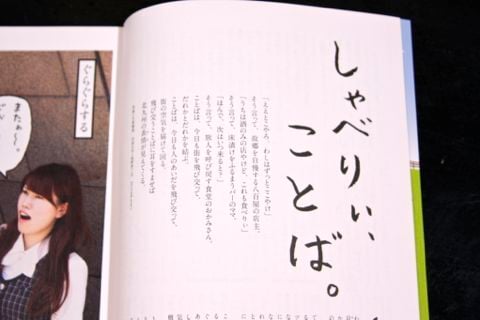 しゃべりぃ、
ことば。
「ええとこやろ、わしはずっとここやけ」
そう言って、故郷を自慢する八百屋の店主。
「うちは酒のみの店やけど、これも食べりぃ」
そう言って、床漬けをふるまうバーのママ。
「ほんで、次はいつ来ると？」
そう言って、旅人を呼び戻す食堂のおかみさん。
ことばは、今日も街を飛び交って、
だれかとだれかを結ぶ。
ことばは、今日も人のあいだを飛び交って、
街の空気を届けて回る。
飛び交うことばに耳をすませば
北九州の表情が見えてくる。
ぐらぐらする
またぁ〜。